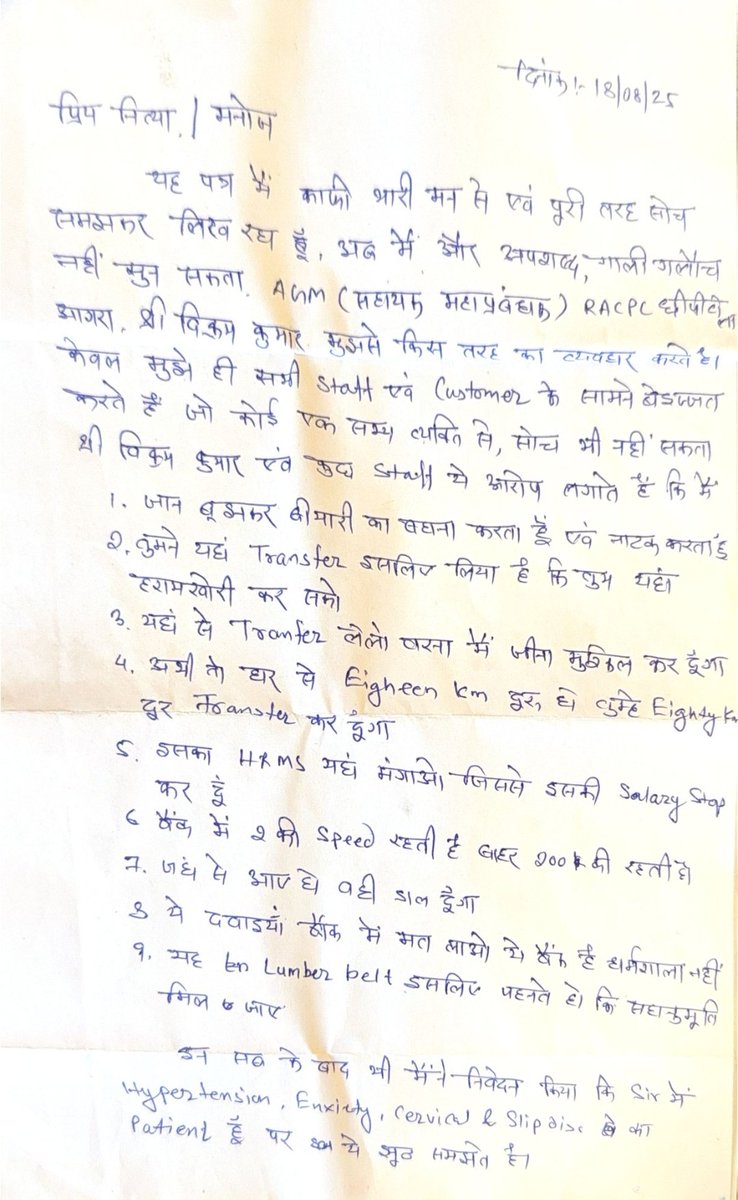 दिनांक:- 18/08/25
प्रिय नित्या, / मनोज
यह पत्र मैं काफी भारी मन से एवं पूरी तरह सोच
समझकर लिख रहा हूँ, अब मैं और अपशब्द, गाली गलौच
नहीं सुन सकता. AGM (सहायक महाप्रबंधक) RACPC
आगरा, श्री विक्रम कुमार मुझसे किस तरह का व्यवहार करते है।
केवल मुझे ही सभी Staff एवं Customer के सामने बेइज्जत
करते हैं जो कोई एक सभ्य व्यक्ति से, सोच भी नहीं सकता
श्री विक्रम कुमार एवं कुछ Staff ये आरोप लगाते हैं कि मैं
1. जान बूझकर बीमारी का बहाना करता हूँ एवं नाटक करता हूं
2. तुमने यहां Transfer इसलिए लिया है कि तुम यहां
हरामखोरी कर सको
3. यहां से Tranfer लेलो वरना मैं जीना मुश्किल कर दूँगा
4. अभी तो घर से Eigheen km दूर हो तुम्हे Eighty Km
दूर Transfer कर दूंगा
5. इसका HRMS यहां मंगाओ जिससे इसकी Salary Stop
कर दूं
6 बैंक में 2 की Speed रहती है बाहर 200 की रहती है
7. जहां से आए हो वही डाल दूँगा
8 ये दवाइयाँ बैंक में मत लाओ ये बैंक है धर्मशाला नहीं
9. यह Lumber belt इसलिए पहनते हो कि सहानुभूति
मिल जाए
इन सब के बाद भी मैंने निवेदन किया कि Sir मैं
Hypertension, Enxiety, Cervical & Slipdisc का
Patient हूँ पर ये झूठ समझते है।